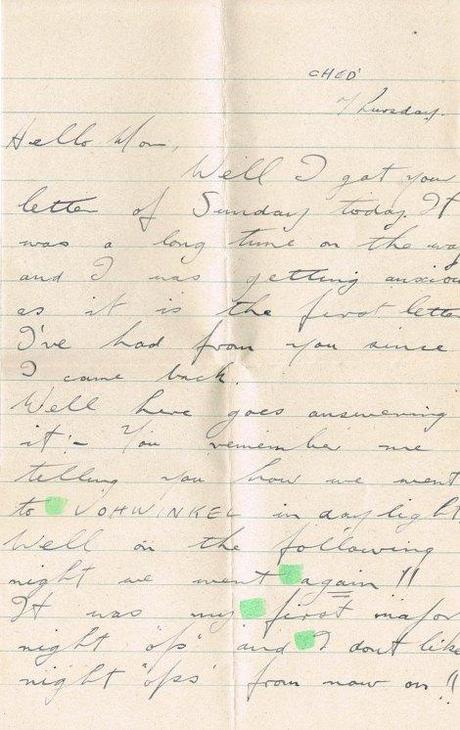 CHED'
Thursday.
Hello Mom,
Well I got your
letter of Sunday today. It
was a long time on the way
and I was getting anxious
as it is the first letter
I've had from you since
I came back.
Well here goes answering
it:- You remember me
telling you how we went
to VOHWINKEL in daylight
Well on the following
night we went again !!
It was my first major
night "ops" and I don't like
night "ops" from now on !!